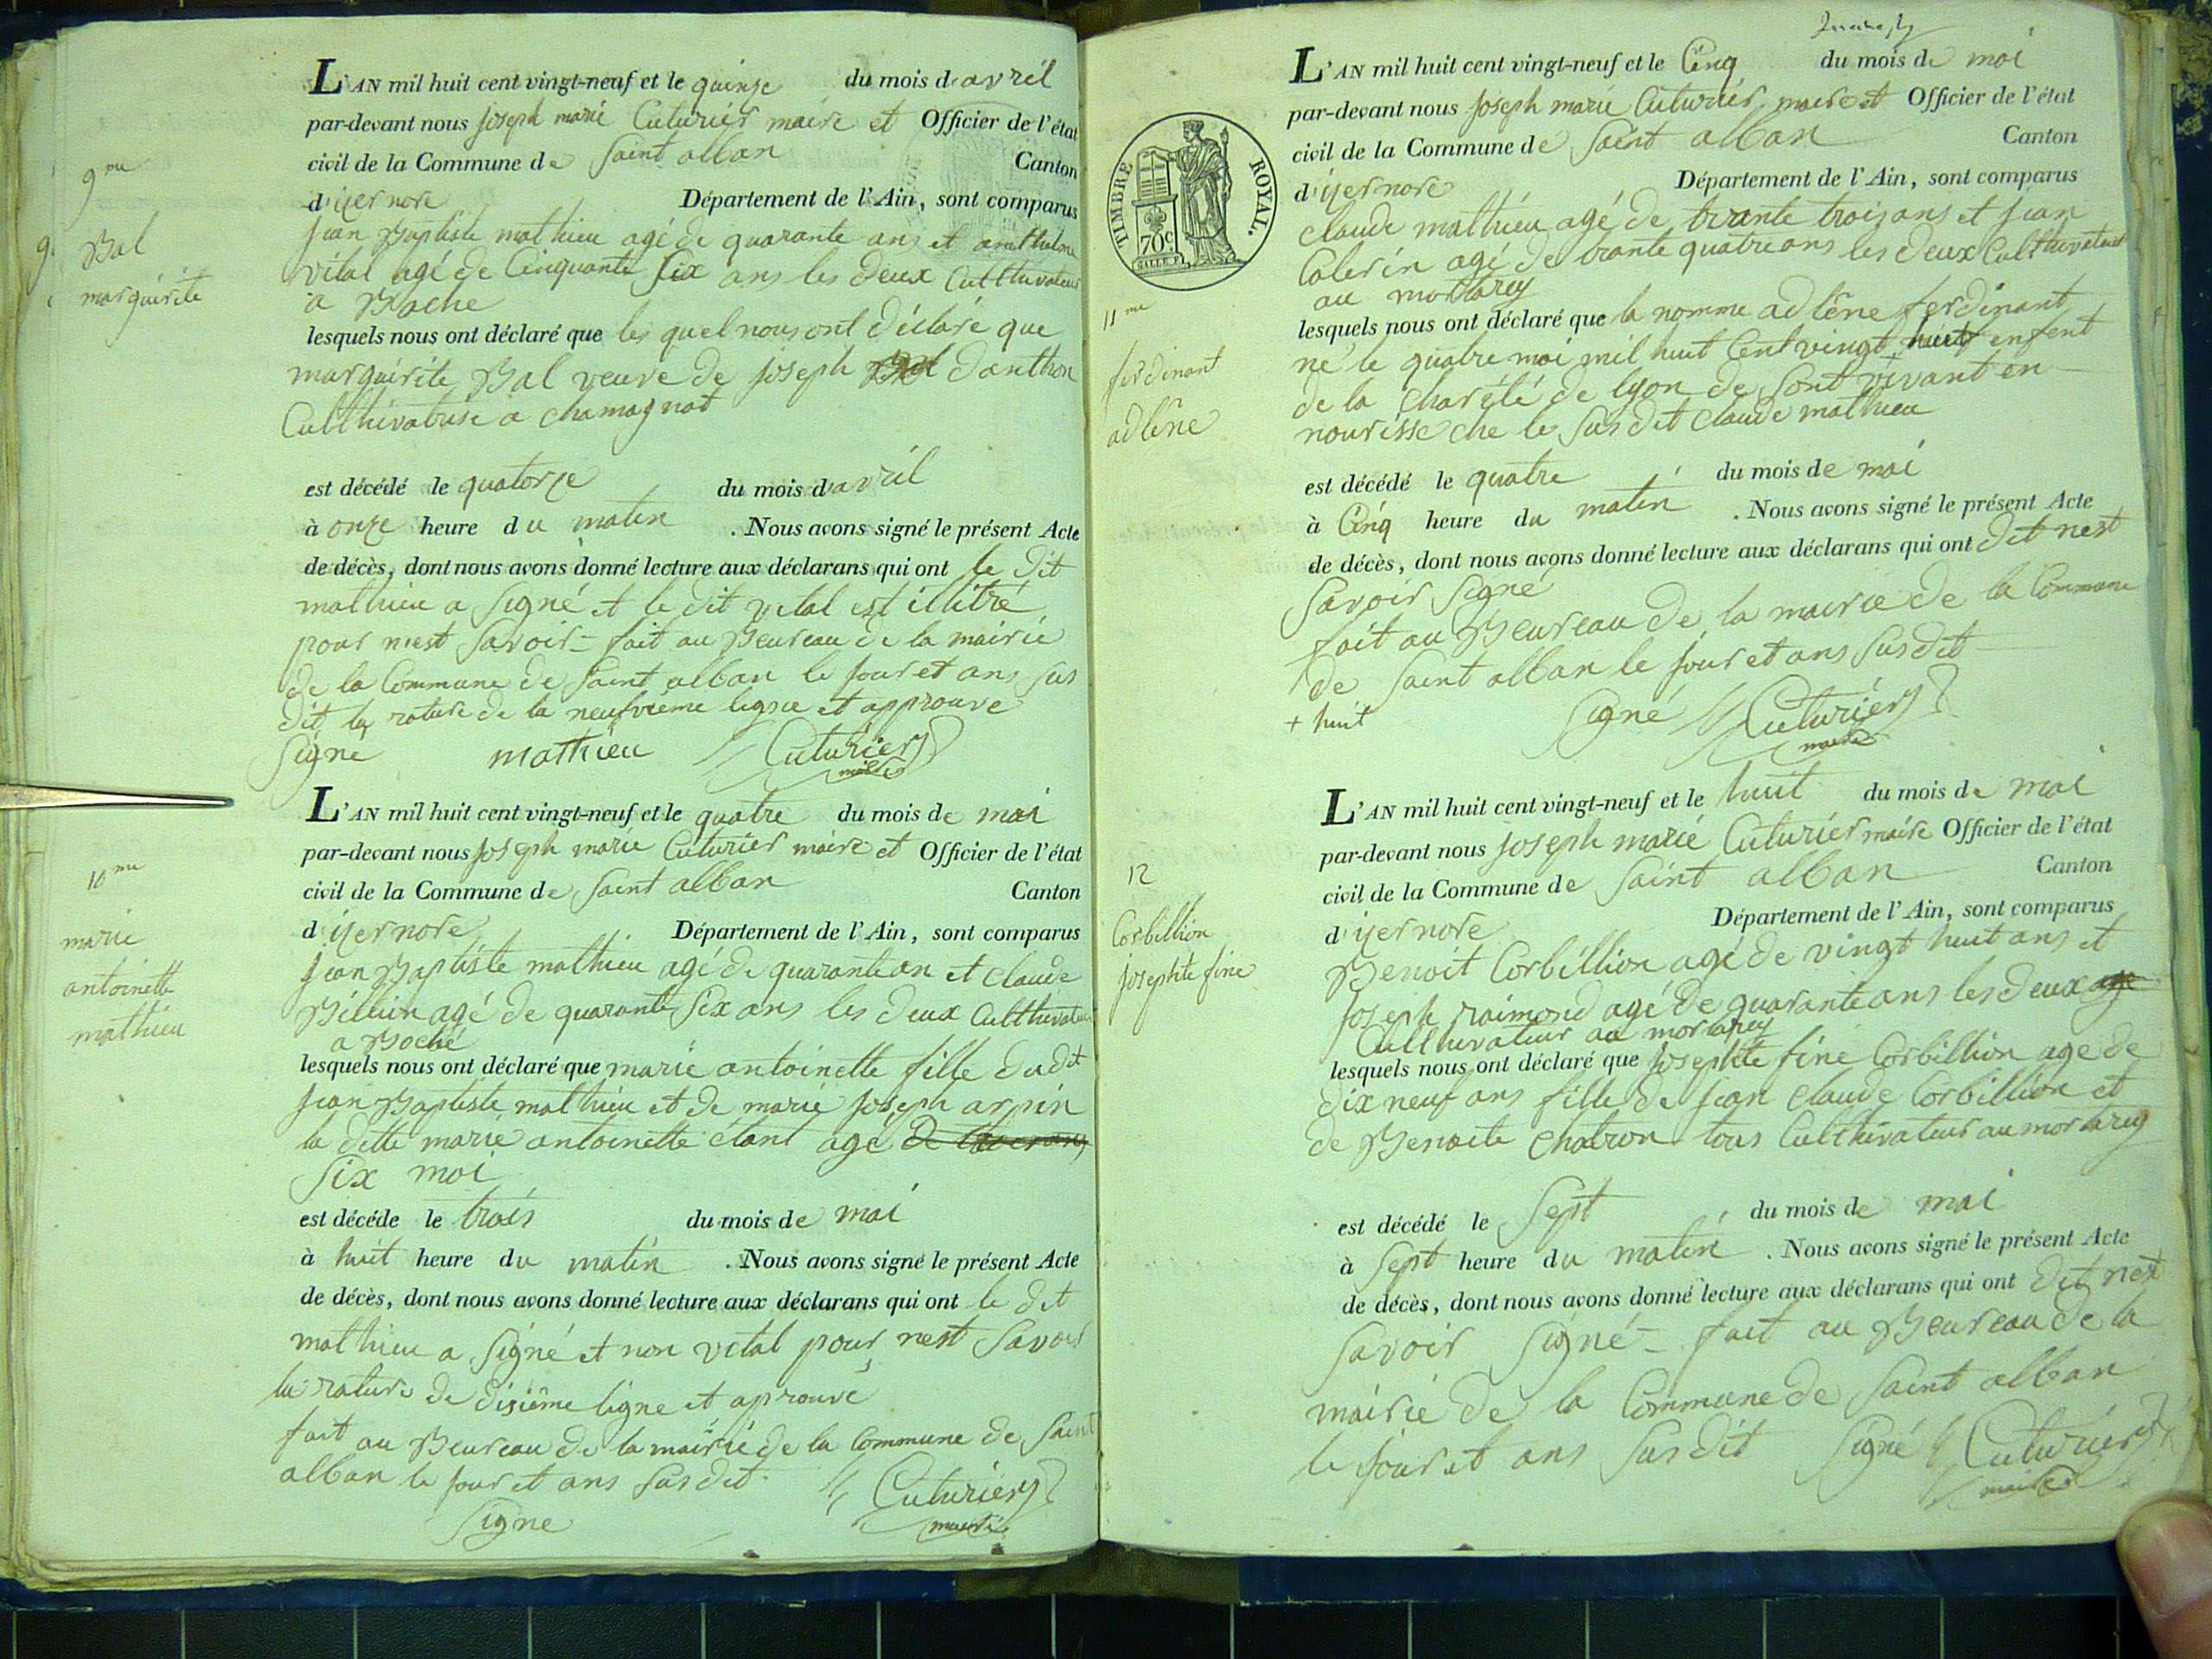 9me
9.
Bal
marguirite
L'AN mil huit cent vingt-neuf et le quinze du mois d'avril
par-devant nous joseph marie Cuturier maire et Officier de l'état
civil de la Commune de Saint alban Canton
d'izernore Département de l'Ain, sont comparus
jean Baptiste mathieu agé de quarante ans et anthelme
vital agé de Cinquante Six ans les deux Culthivateur
a Boche
lesquels nous ont déclaré que les quel nous ont déclaré que
marguirite Bal veuve de joseph danthon
Culthivatrise a chamagnat
est décédé le quatorze du mois d'avril
à onze heure du matin . Nous avons signé le présent Acte
de décès, dont nous avons donné lecture aux déclarans qui ont le dit
mathieu a Signé et le dit vital est illitré
pour nest Savoir - fait au Beureau de la mairie
de la Commune de Saint alban le jour et ans Sus
dit la rature de la neufvième ligne et approuve
Signé mathieu Cuturier
maire
10me
marie
antoinette
mathieu
L'AN mil huit cent vingt-neuf et le quatre du mois de mai
par-devant nous joseph marie Cuturier maire et Officier de l'état
civil de la Commune de Saint alban Canton
d'izernore Département de l'Ain, sont comparus
jean Baptiste mathieu agé de quarante an et claude
agé de quarante Six ans les deux Culthivateur
a Boché
lesquels nous ont déclaré que marie antoinette fille dudit
jean Baptiste mathieu et de marie joseph arpin
la ditte marie antoinette étant age de
Six moi
est décéde le trois du mois de mai
à huit heure du matin . Nous avons signé le présent Acte
de décès, dont nous avons donné lecture aux déclarans qui ont le dit
mathieu a Signé et non vital pour nest Savoir
la rature de disième ligne et aprouvé
fait au Beureau de la mairie de la Commune de Saint
alban le jour et ans Susdit. Cuturier
Signe maire
TIMBRE ROYAL.
70c
L'AN mil huit cent vingt-neuf et le Cinq du mois de mai
par-devant nous joseph marie Cuturier maire et Officier de l'état
civil de la Commune de Saint alban Canton
d'izernore Département de l'Ain, sont comparus
claude mathieu agé de trante trois ans et jean
Colerin agé de trante quatre ans les deux Culthivateur
au mortarey
11me
ferdinant
adlêne
lesquels nous ont déclaré que le nomme adlêne ferdinant
né le quatre mai mil huit Cent vingt huit enfent
de la charété de lyon de Sont vivant en
nourisse ché le Susdit claude mathieu
est décédé le quatre du mois de mai
à Cinq heure du matin . Nous avons signé le présent Acte
de décès, dont nous avons donné lecture aux déclarans qui ont dit nest
Savoir Signé
fait au Beureau de la mairie de la Commune
de Saint alban le jour et ans Susdit
+ huit Signé Cuturier
maire
12
Corbillion
josephte fine
L'AN mil huit cent vingt-neuf et le huit du mois de mai
par-devant nous joseph marie Cuturier maire Officier de l'état
civil de la Commune de Saint alban Canton
d'izernore Département de l'Ain, sont comparus
Benoit Corbillion agé de vingt huit ans et
joseph raimond agé de quarante ans les deux age
Culthivateur au mortarey
lesquels nous ont déclaré que josephte fine Corbillion age de
dix neuf ans fille de jean claude Corbillion et
de Benoite chatron tous Culthivateur au mortarey
est décédé le Sept du mois de mai
à Sept heure du matin . Nous avons signé le présent Acte
de décès, dont nous avons donné lecture aux déclarans qui ont dit nest
Savoir Signé - fait au Beureau de la
mairie de la Commune de Saint alban
le jour et ans Susdit Signé Cuturier
maire